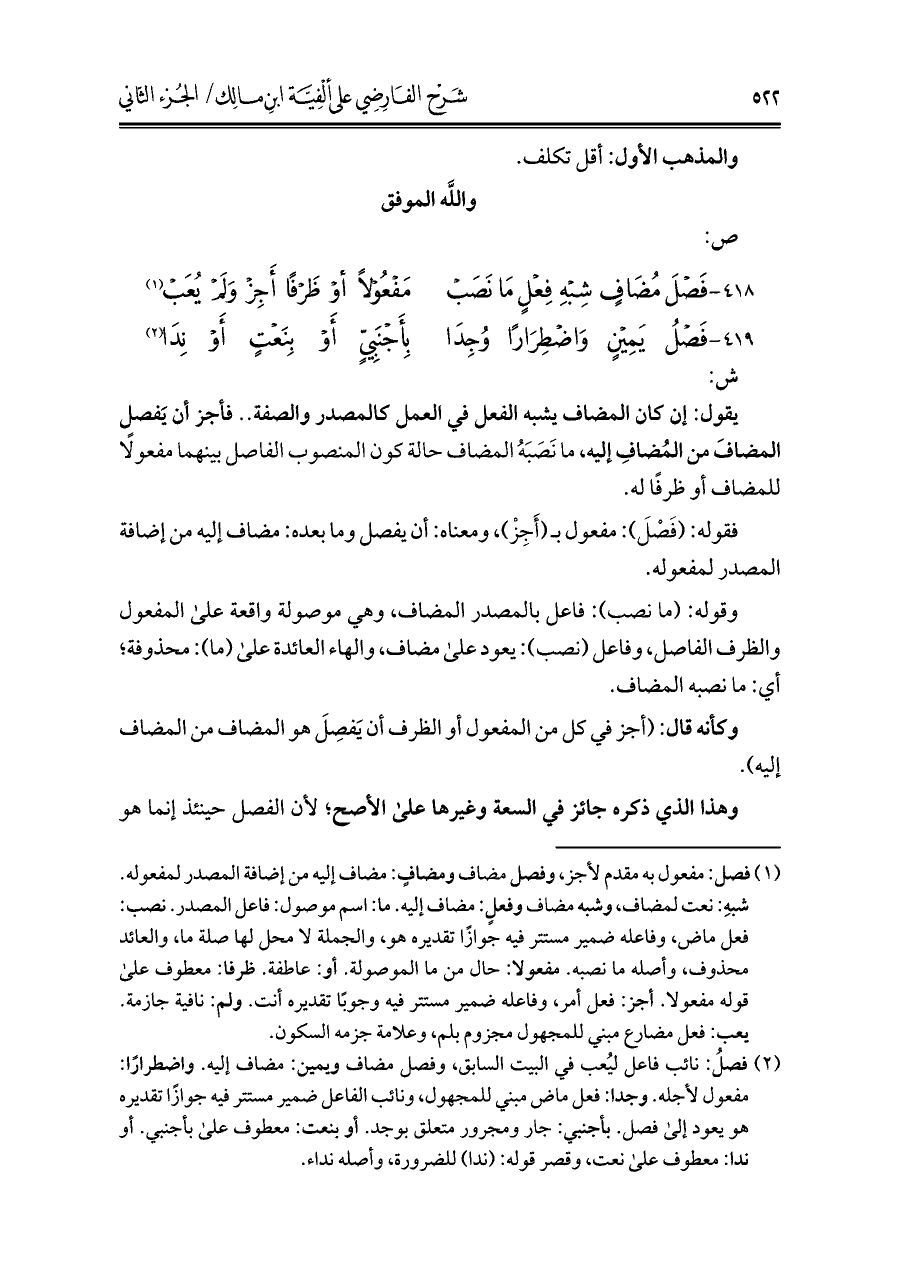 ٥٢٢ شرح الفارضي على ألفية ابن مالك/ الجزء الثاني
والمذهب الأول: أقل تكلف.
واللَّه الموفق
ص:
٤١٨-فَصْلَ مُضَافٍ شِبْهِ فِعْلٍ مَا نَصَبْ مَفْعُوْلاً أوْ ظَرْفًا أَجِزْ وَلَمْ يُعَبْ(١)
٤١٩-فَصْلُ يَمِيْنٍ وَاضْطِرَارًا وُجِدَا بِأَجْنَبِيٍّ أَوْ بِنَعْتٍ أَوْ نِدَا(٢)
ش:
يقول: إن كان المضاف يشبه الفعل في العمل كالمصدر والصفة.. فأجز أن يَفصل
المضافَ من المُضافِ إليه، ما نَصَبَهُ المضاف حالة كون المنصوب الفاصل بينهما مفعولًا
للمضاف أو ظرفًا له.
فقوله: (فَصْلَ): مفعول بـ(أَجِزْ)، ومعناه: أن يفصل وما بعده: مضاف إليه من إضافة
المصدر لمفعوله.
وقوله: (ما نصب): فاعل بالمصدر المضاف، وهي موصولة واقعة علىٰ المفعول
والظرف الفاصل، وفاعل (نصب): يعود علىٰ مضاف، والهاء العائدة علىٰ (ما): محذوفة؛
أي: ما نصبه المضاف.
وكأنه قال: (أجز في كل من المفعول أو الظرف أن يَفصِلَ هو المضاف من المضاف
إليه).
وهذا الذي ذكره جائز في السعة وغيرها علىٰ الأصح؛ لأن الفصل حينئذ إنما هو
(١) فصل: مفعول به مقدم لأجز، وفصل مضاف ومضافٍ: مضاف إليه من إضافة المصدر لمفعوله.
شبهِ: نعت لمضاف، وشبه مضاف وفعلٍ: مضاف إليه. ما: اسم موصول: فاعل المصدر. نصب:
فعل ماض، وفاعله ضمير مستتر فيه جوازًا تقديره هو، والجملة لا محل لها صلة ما، والعائد
محذوف، وأصله ما نصبه. مفعولا: حال من ما الموصولة. أو: عاطفة. ظرفا: معطوف علىٰ
قوله مفعولا. أجز: فعل أمر، وفاعله ضمير مستتر فيه وجوبًا تقديره أنت. ولم: نافية جازمة.
يعب: فعل مضارع مبني للمجهول مجزوم بلم، وعلامة جزمه السكون.
(٢) فصلُ: نائب فاعل ليُعب في البيت السابق، وفصل مضاف ويمين: مضاف إليه. واضطرارًا:
مفعول لأجله. وجدا: فعل ماض مبني للمجهول، ونائب الفاعل ضمير مستتر فيه جوازًا تقديره
هو يعود إلىٰ فصل. بأجنبي: جار ومجرور متعلق بوجد. أو بنعت: معطوف علىٰ بأجنبي. أو
ندا: معطوف علىٰ نعت، وقصر قوله: (ندا) للضرورة، وأصله نداء.